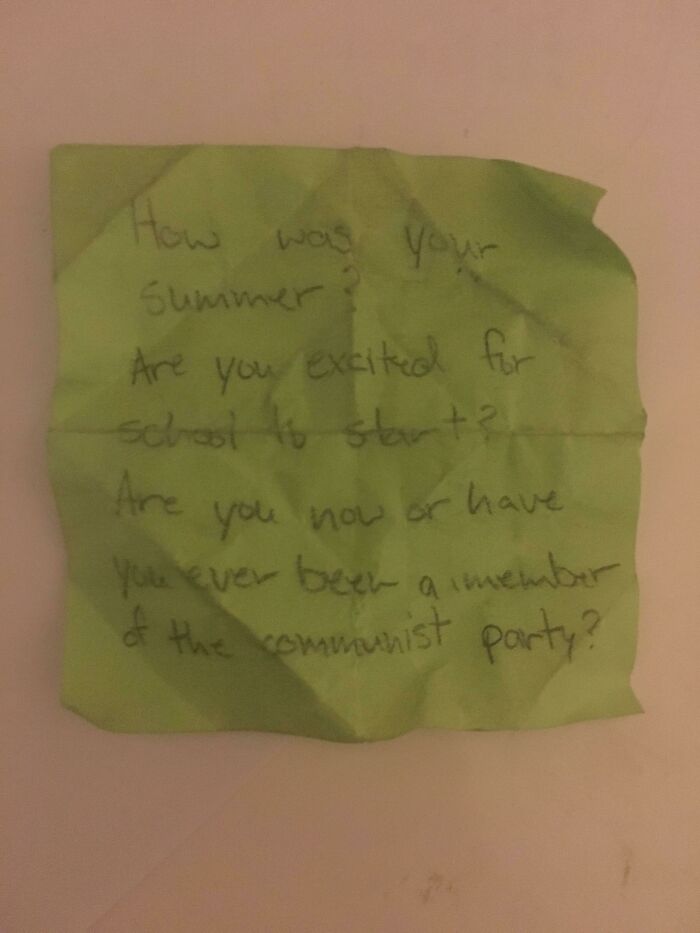 How was your
summer?
Are you excited for
school to start?
Are you now or have
you ever been a member
of the communist party?